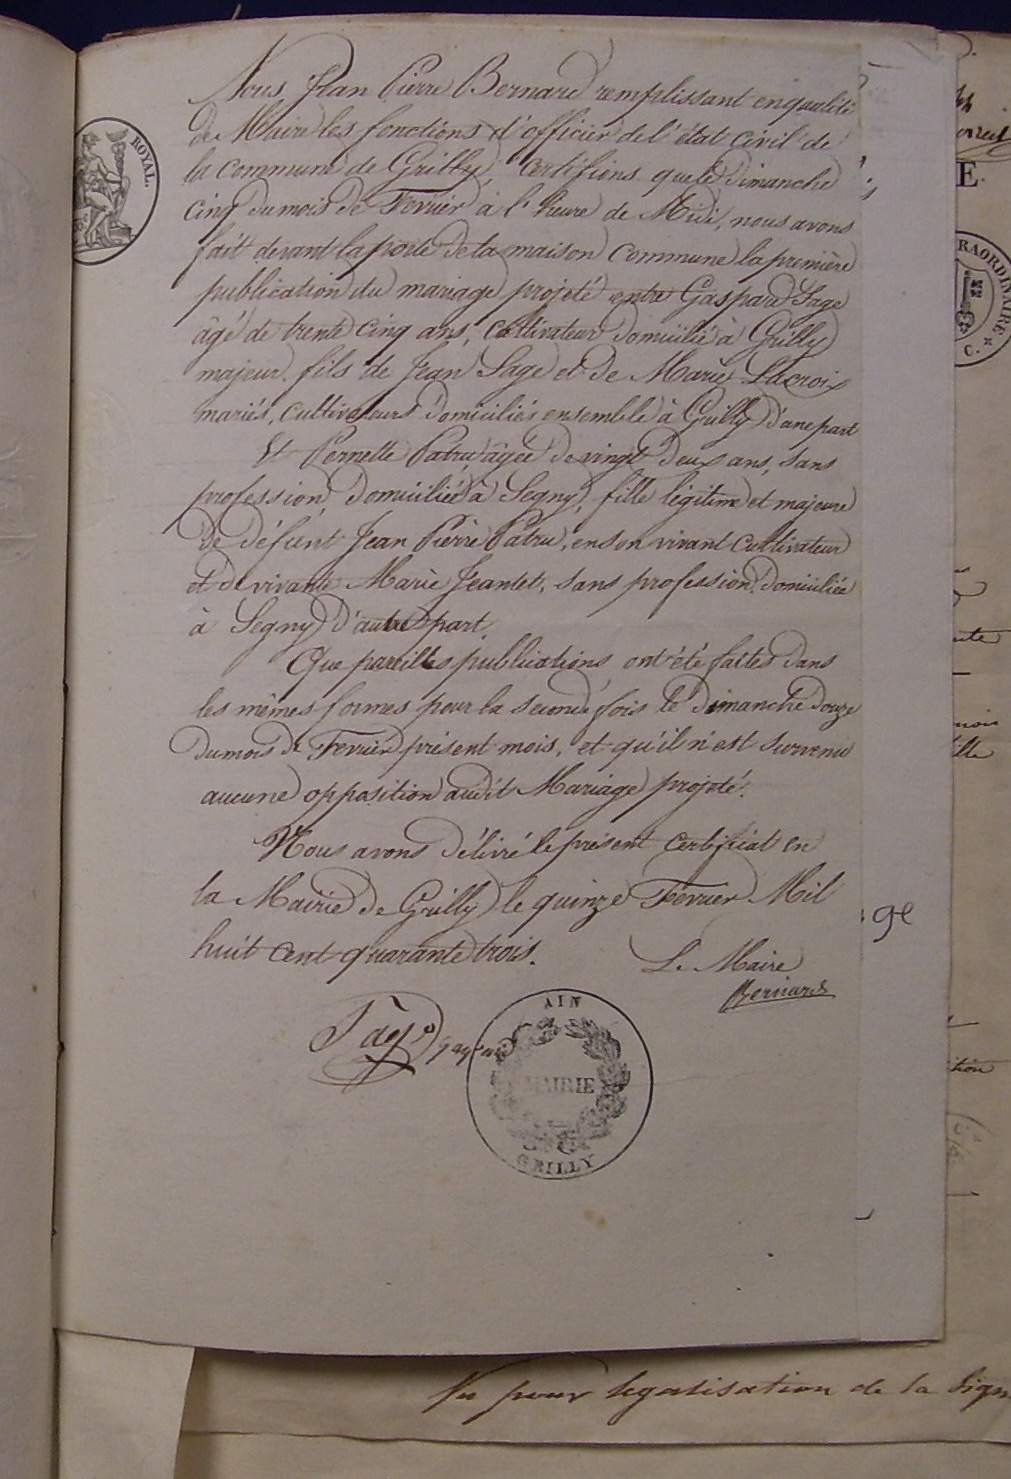 Nous Jean Pierre Bernard remplissant en qualité
de Maire les fonctions d'officier de l'état civil de
la commune de Grilly, certifions que le dimanche
cinq du mois de Fevrier à l'heure de Midi, nous avons
fait devant la porte de la maison commune la première
publication du mariage projeté entre Gaspard Sage
âgé de trente cinq ans, cultivateur domicilié à Grilly
majeur fils de Jean Sage et de Marie Lacroix
mariés, cultivateurs domiciliés ensemble à Grilly d'une part
Et Pernette Patru, âgée de vingt deux ans, sans
profession, domiciliée à Segny, fille légitime et majeure
de défunt Jean Pierre Patru, en son vivant cultivateur
et de vivante Marie Jeantet, sans profession, domiciliée
à Segny d'autre part.
Que pareilles publications ont été faites dans
les mêmes formes pour la seconde fois le dimanche douze
du mois de Fevrier présent mois, et qu'il n'est survenu
aucune opposition audit Mariage projeté.
Nous avons délivré le présent certificat en
la Mairie de Grilly le quinze Fevrier Mil
huit cent quarante trois.
Le Maire
Bernard
Sage
AIN
MAIRIE
GRILLY
ROYAL.
E.
RAORDINAIRE
C.
ge
Vu pour legalisation de la sign